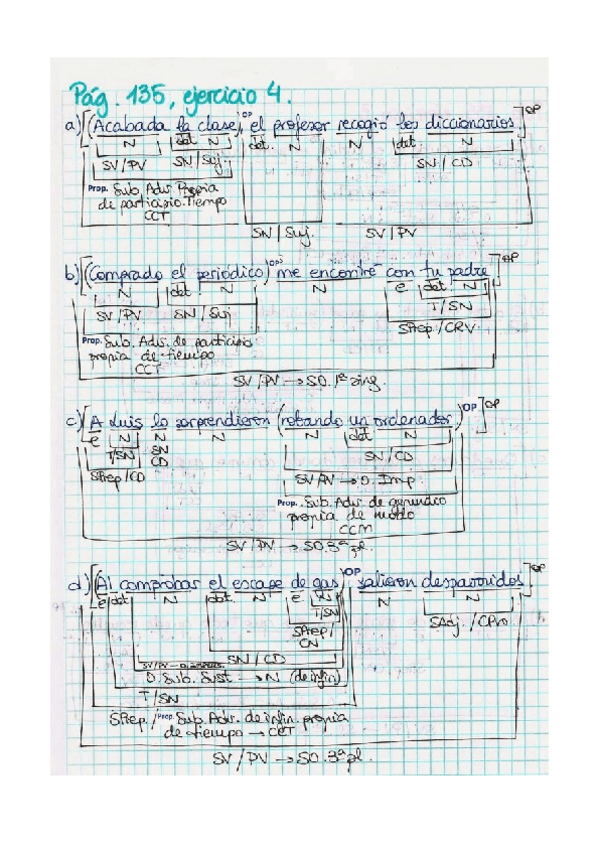 Pág. 135, ejercicio 4.
a) [(Acabada la clase) OP, el profesor recogió los diccionarios] OP
N det N det. N N det. N
SV/PV SN/Suj. SN/CD
Prop. Sub. Adv. Propia
de participio. Tiempo
CCT
SN/Suj. SV/PV
b) [(Comprado el periódico) OP, me encontré con tu padre] OP
N det. N N e det. N
SV/PV SN/Suj T/SN
SPrep/CRV
Prop. Sub. Adv. de participio
propia de tiempo
CCT
SV/PV → SO. 1ª sing.
c) [A Luis lo sorprendieron (robando un ordenador) OP] OP
e N N N N det N
T/SN SN CD SN/CD
SPrep/CD SV/PV → O. Imp.
Prop. Sub. Adv. de gerundio
propia de modo
CCM
SV/PV → SO. 3ª pl.
d) [(Al comprobar el escape de gas) OP, salieron despavoridos] OP
e det N det. N e N N N
T/SN
SPrep/CN SAdj./CPvo
SN/CD
O. Sub. Sust. → N (de infin)
T/SN
SPrep./Prop. Sub. Adv. de infin. propia
de tiempo → CCT
SV/PV → SO. 3ª pl.